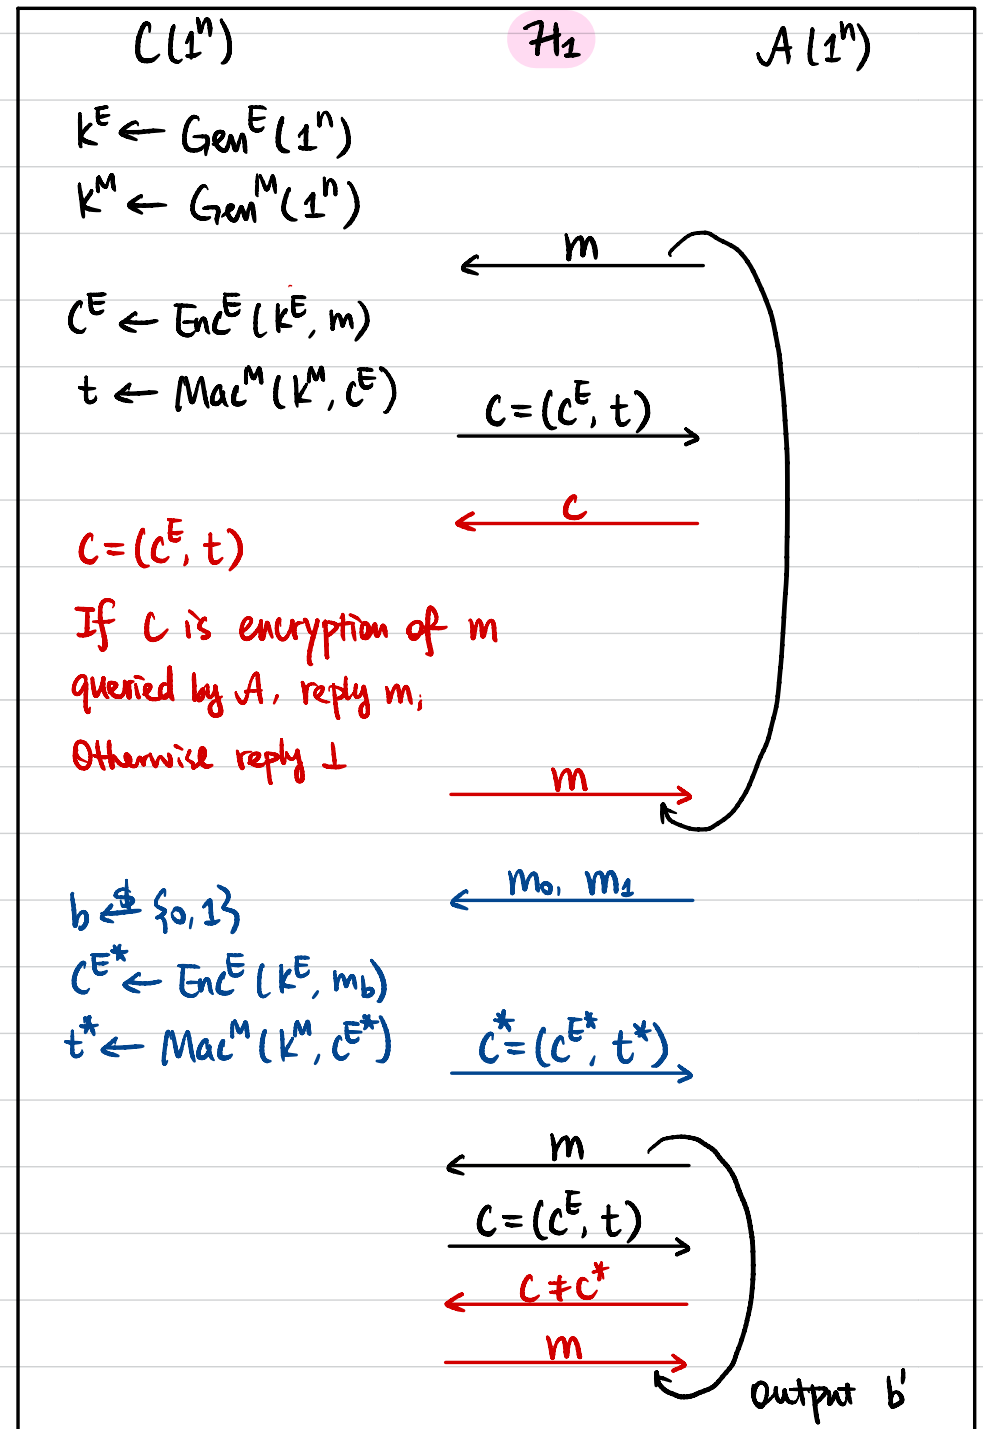 C(1ⁿ) H₁ A(1ⁿ)
k^E ← Gen^E(1ⁿ)
k^M ← Gen^M(1ⁿ)
m
C^E ← Enc^E(k^E, m)
t ← Mac^M(k^M, C^E)
C=(C^E, t)
C
C=(C^E, t)
If C is encryption of m
queried by A, reply m;
Otherwise reply ⊥
m
m₀, m₁
b ←$ {0,1}
C^E* ← Enc^E(k^E, m_b)
t* ← Mac^M(k^M, C^E*)
C*=(C^E*, t*)
m
C=(C^E, t)
C≠C*
m
Output b'